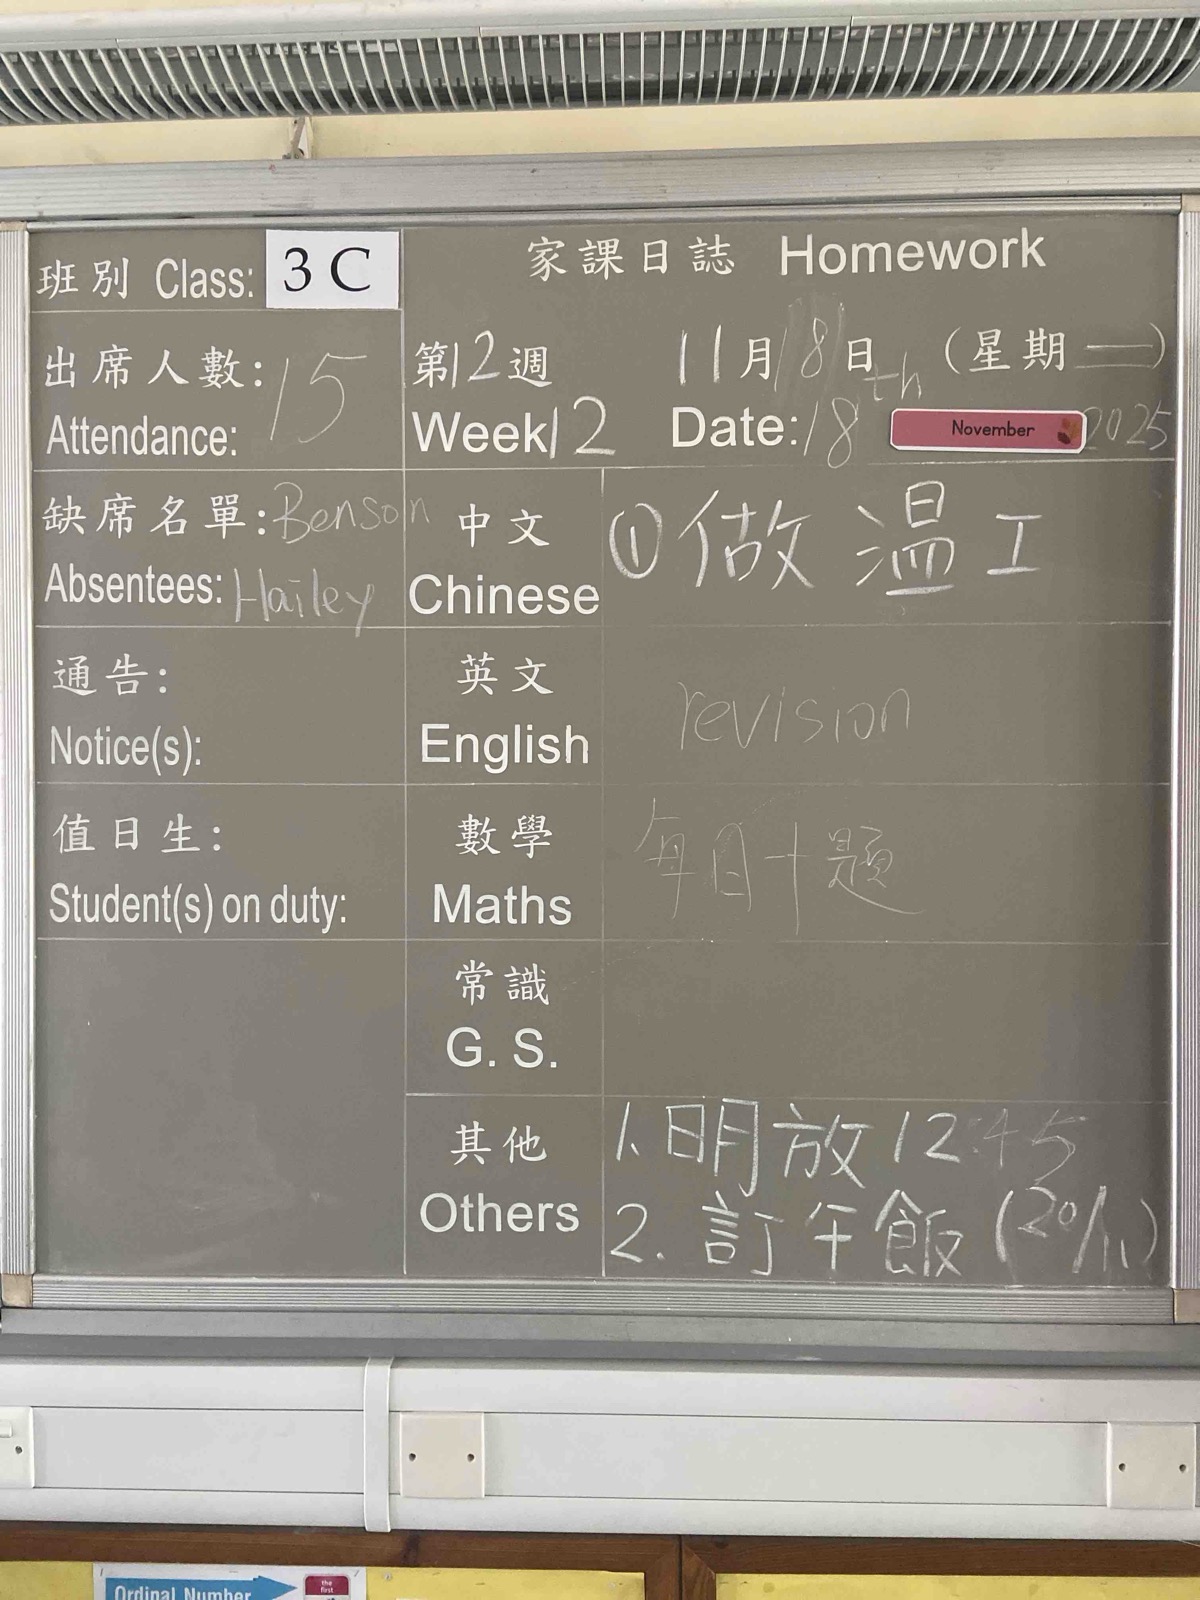 班別 Class: 3 C
家課日誌 Homework
出席人數: 15
Attendance:
第12週 11月18日 (星期二)
Week 12 Date: 18th November 2025
缺席名單: Benson
Absentees: Hailey
中文
Chinese
①做 溫 工
通告:
Notice(s):
英文
English
revision
值日生:
Student(s) on duty:
數學
Maths
每日十題
常識
G. S.
其他
Others
1. 明放 12:45
2. 訂午飯 (20/11)
Ordinal Number
the
first